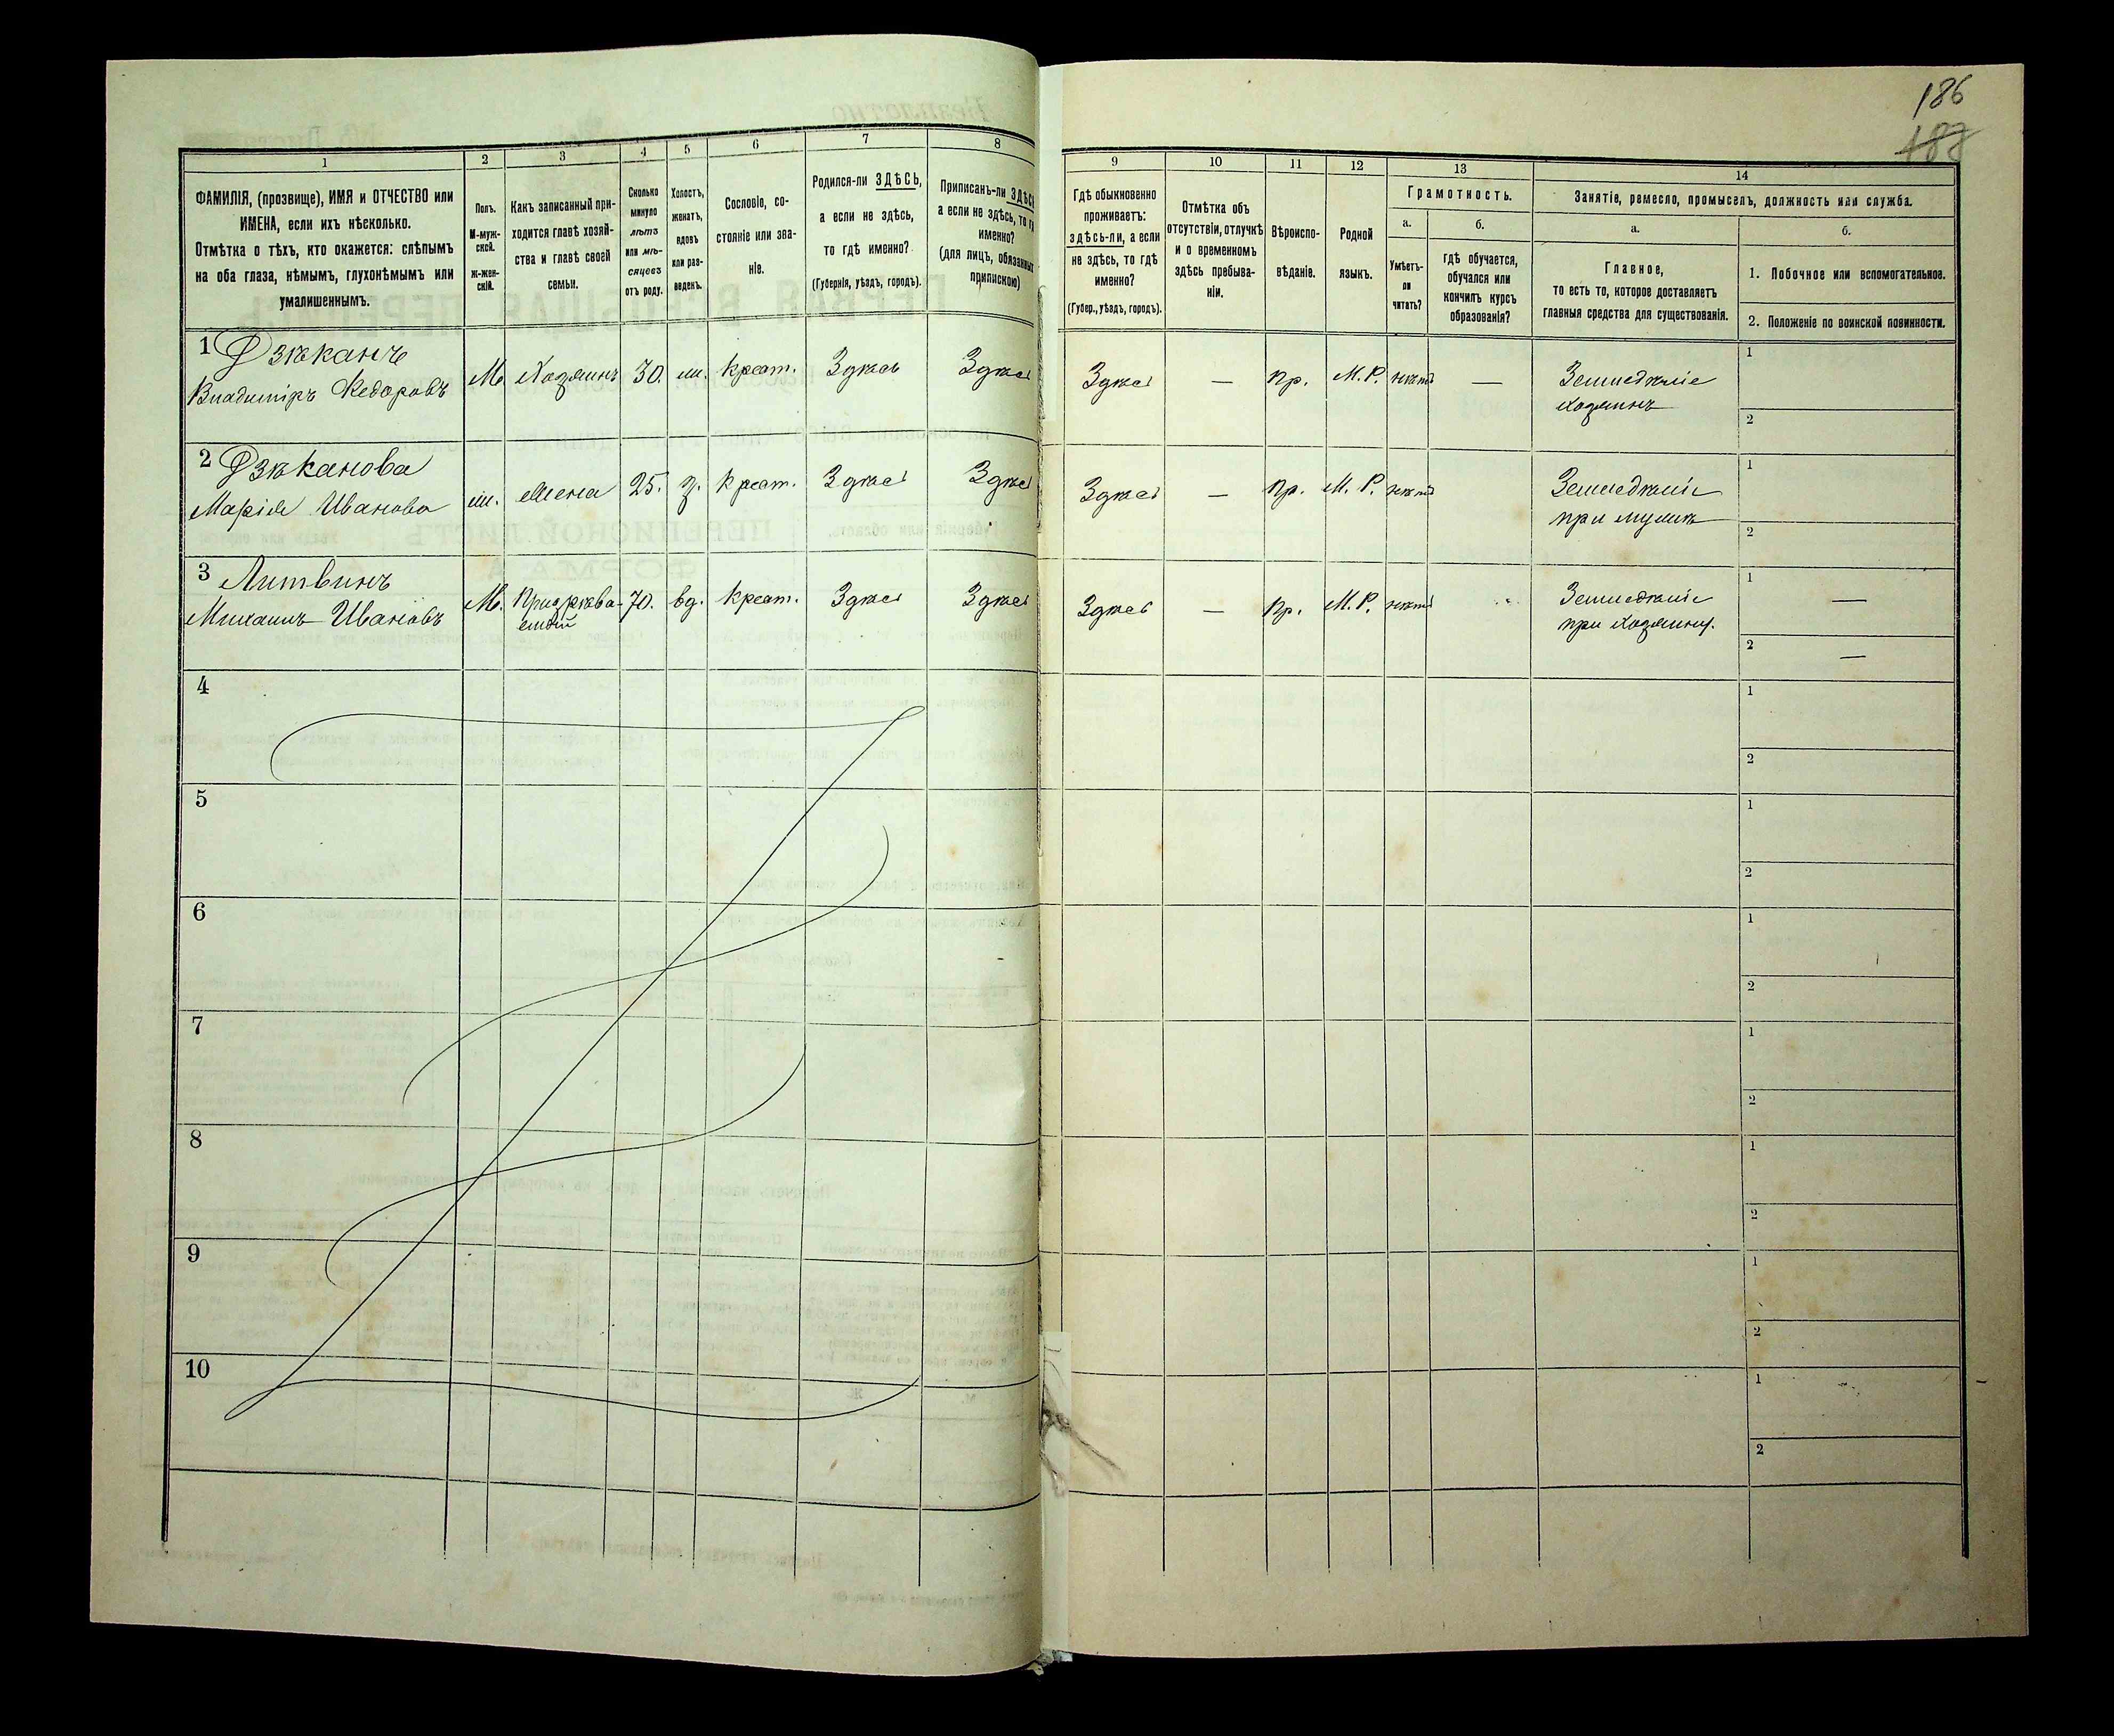 186
188
1
2
3
4
5
6
7
8
ФАМИЛІЯ, (прозвище), ИМЯ и ОТЧЕСТВО или
ИМЕНА, если ихъ нѣсколько.
Отмѣтка о тѣхъ, кто окажется: слѣпымъ
на оба глаза, нѣмымъ, глухонѣмымъ или
умалишеннымъ.
Полъ.
М-муж-
ской.
Ж-жен-
скій.
Какъ записанный при-
ходится главѣ хозяй-
ства и главѣ своей
семьи.
Сколько
минуло
лѣтъ
или мѣ-
сяцевъ
отъ роду.
Холостъ,
женатъ,
вдовъ
или раз-
веденъ.
Сословіе, со-
стояніе или зва-
ніе.
Родился-ли ЗДѢСЬ,
а если не здѣсь,
то гдѣ именно?
(Губернія, уѣздъ, городъ).
Приписанъ-ли ЗДѢСЬ
а если не здѣсь, то гдѣ
именно?
(для лицъ, обязанныхъ
припискою)
9
10
11
12
13
14
Гдѣ обыкновенно
проживаетъ:
здѣсь-ли, а если
не здѣсь, то гдѣ
именно?
(Губер., уѣздъ, городъ).
Отмѣтка объ
отсутствіи, отлучкѣ
и о временномъ
здѣсь пребыва-
ніи.
Вѣроиспо-
вѣданіе.
Родной
языкъ.
Грамотность.
а.
Умѣетъ-
ли
читать?
б.
гдѣ обучается,
обучался или
кончилъ курсъ
образованія?
Занятіе, ремесло, промыселъ, должность или служба.
а.
Главное,
то есть то, которое доставляетъ
главныя средства для существованія.
б.
1. Побочное или вспомогательное.
2. Положеніе по воинской повинности.
1
Владиміръ Ѳедоровъ
М. Хозяинъ 30. ж. Крест. Здѣсь Здѣсь Здѣсь — Пр. М.Р. нѣтъ — Земледѣліе
хозяинъ
1
2
2
Марія Иванова
ж. Жена 25. з. Крест. Здѣсь Здѣсь Здѣсь — Пр. М.Р. нѣтъ Земледѣліе
при мужѣ
1
2
3 Литвинъ
Михаилъ Ивановъ
М. Призрѣва-
емый
70. вд. Крест. Здѣсь Здѣсь Здѣсь — Пр. М.Р. нѣтъ Земледѣліе
при хозяину.
1 —
2 —
4
1
2
5
1
2
6
1
2
7
1
2
8
1
2
9
1
2
10
1
2